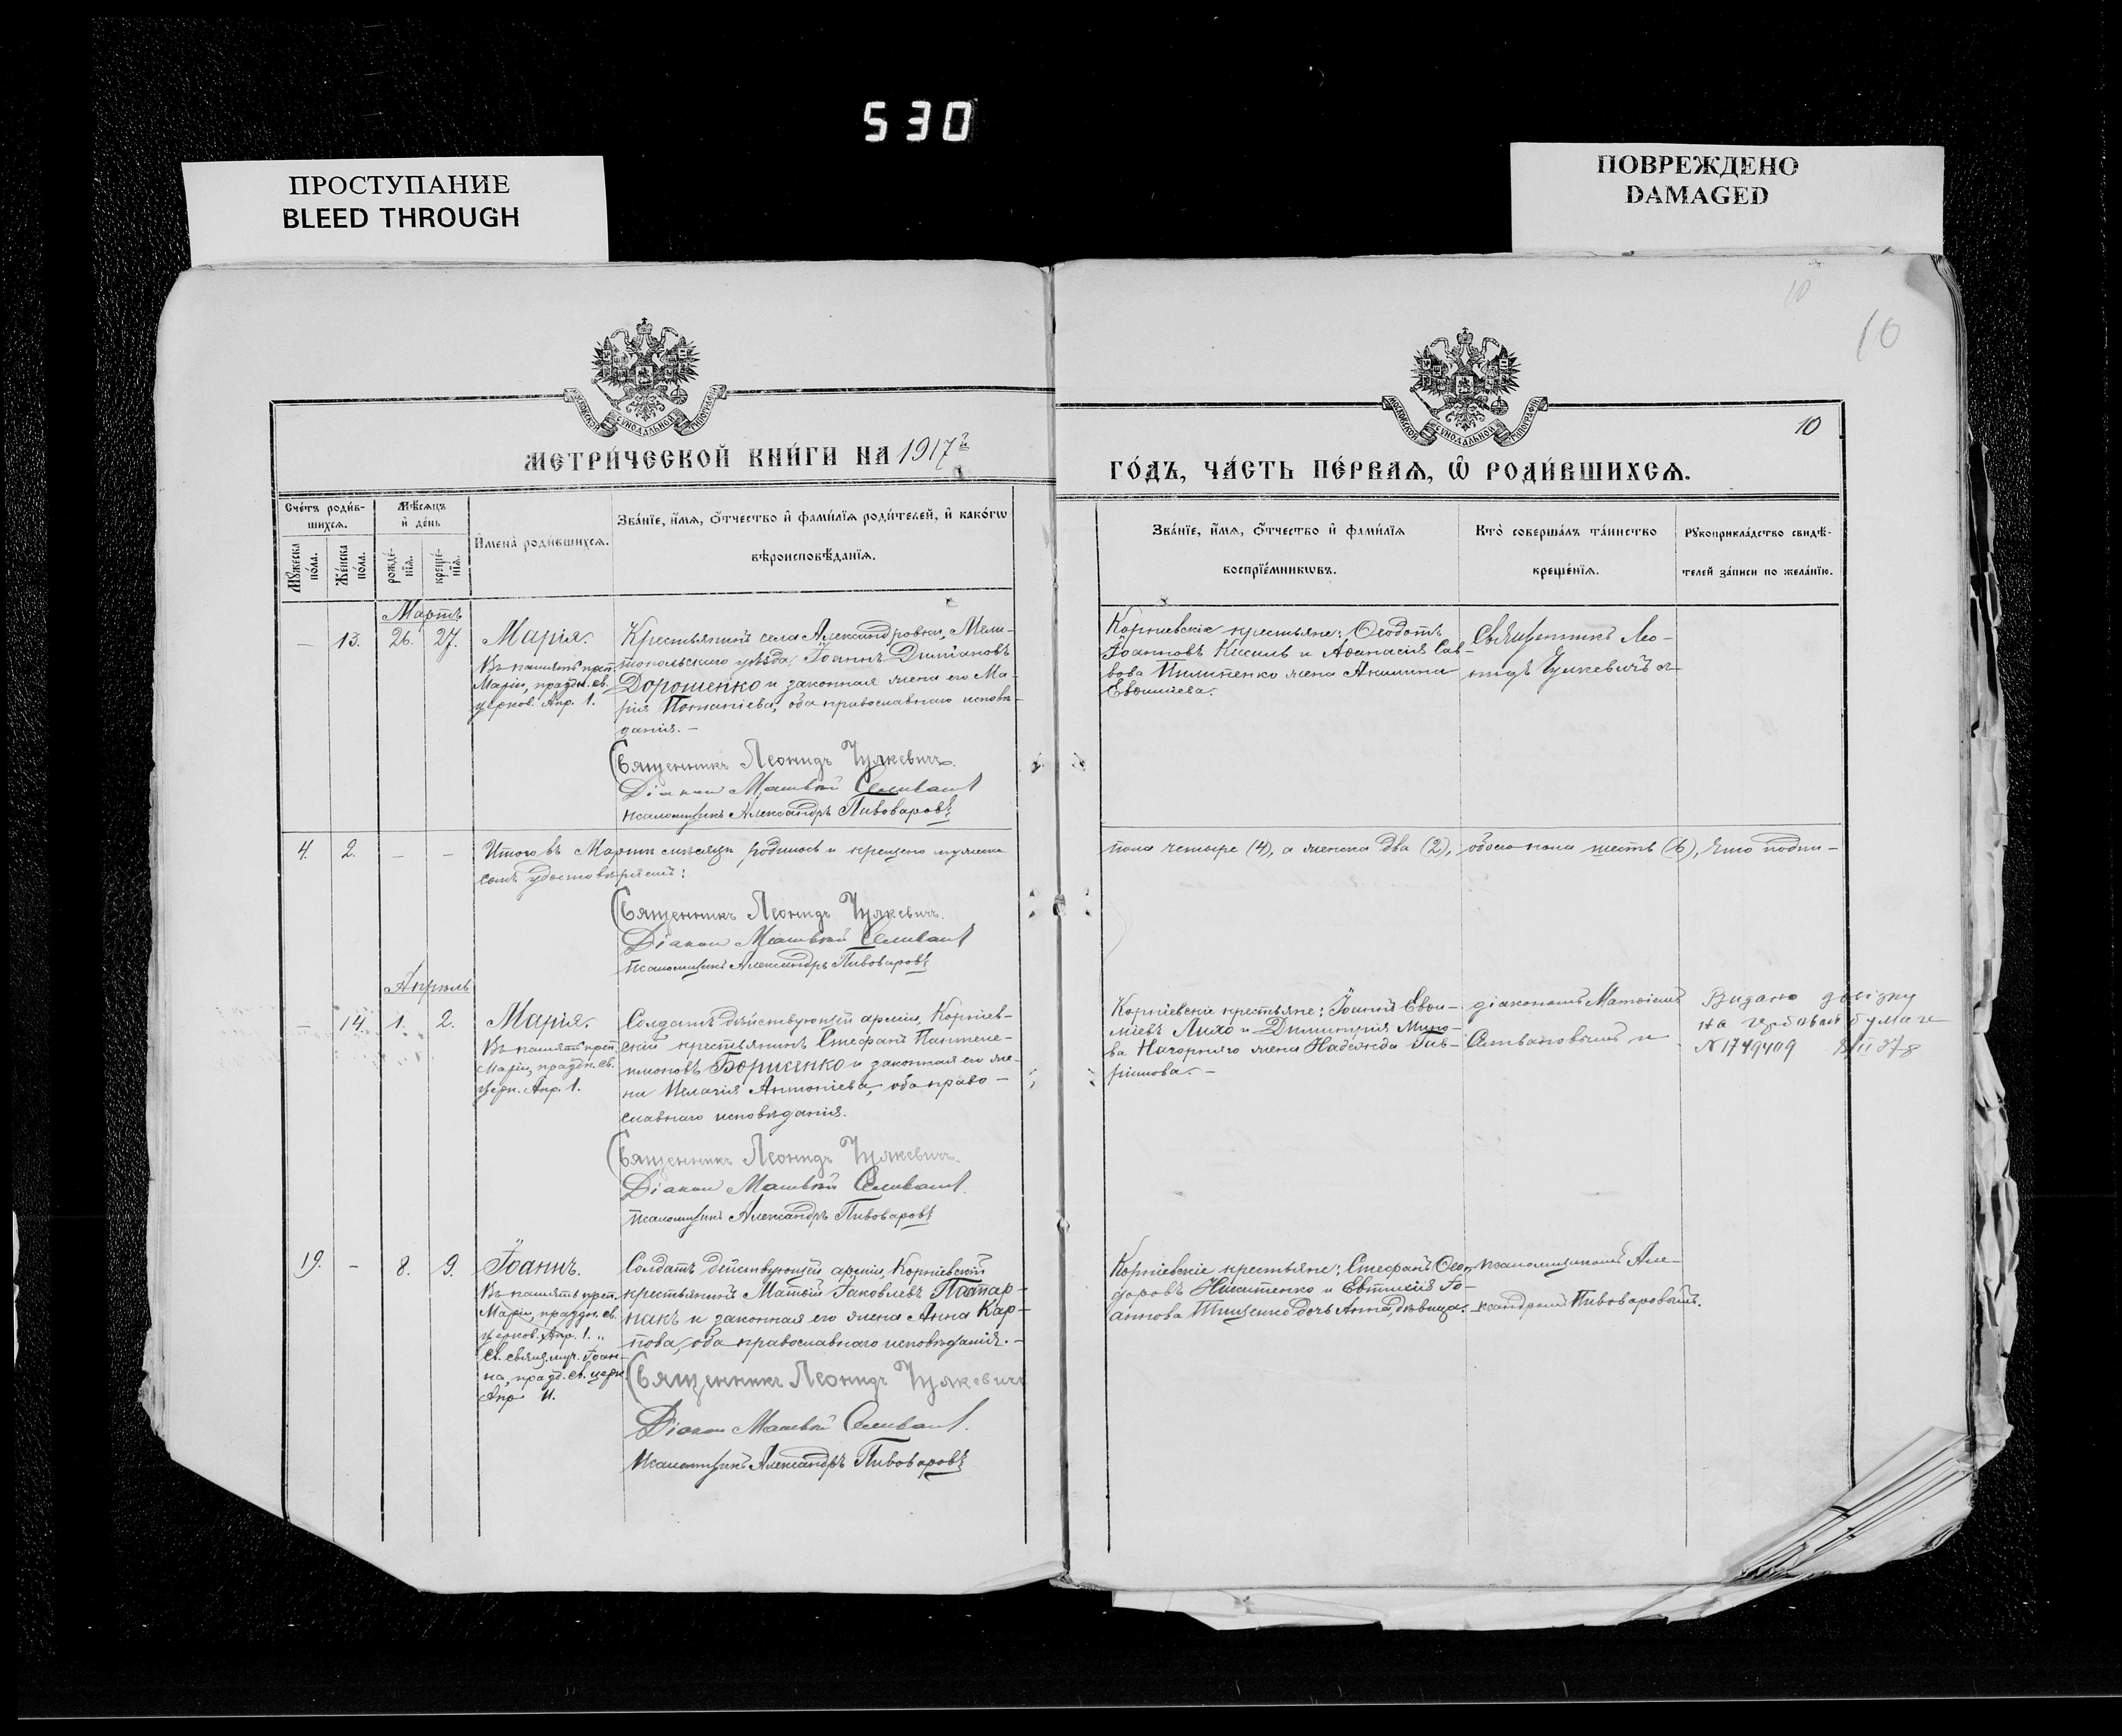 530
ПРОСТУПАНИЕ
BLEED THROUGH
ПОВРЕЖДЕНО
DAMAGED
10
10
МОСКОВСКОЙ СУНОДАЛЬНОЙ ТИПОГРАФІИ
МОСКОВСКОЙ СУНОДАЛЬНОЙ ТИПОГРАФІИ
10
МЕТРИ́ЧЕСКОЙ КНИ́ГИ НА 1917 г.
ГО́ДЪ, ЧА́СТЬ ПЕ́РВАѦ, Ѡ РОДИ́ВШИХСѦ.
Сче́тъ роди́в-
шихсѧ.
Мꙋ́жеска по́ла.
Же́нска по́ла.
Мѣ́сѧцъ
и҆ де́нь
рожде́-
нїѧ.
креще́-
нїѧ.
И҆мена̀ роди́вшихсѧ.
Зва́нїе, и҆́мѧ, ѻ҆́тчество и҆ фами́лїѧ роди́телей, и҆ како́гѡ
вѣроисповѣ́данїѧ.
Зва́нїе, и҆́мѧ, ѻ҆́тчество и҆ фами́лїѧ
воспрїе́мникѡвъ.
Кто̀ соверша́лъ та́инство
креще́нїѧ.
Рꙋкоприкла́дство свидѣ́-
телей за́писи по жела́нїю.
Мартъ
— 13. 26. 27. Марія.
Въ память преп.
Маріи, праздн. св.
церков. Апр. 1.
Крестьянинъ села Александровки, Мели-
топольскаго уѣзда, Іоаннъ Диміановъ
Дорошенко и законная жена его Ма-
рія Потапіева, оба православнаго исповѣ-
данія. —
Священникъ Леонидъ Чулкевичъ.
Діакон Матвѣй Селиванов
Псаломщикъ Александръ Пивоваровъ
Корніевскіе крестьяне: Ѳеодотъ
Іоанновъ Кисиль и Аѳанасія Сав-
вова Пилипенко жена Акилина
Евѳиміева.
Священникъ Лео-
нидъ Чулкевичъ съ
4. 2. — — Итого въ Мартѣ мѣсяцѣ родилось и крещено мужеска
пола четыре (4), а женска два (2), обоего пола шесть (6), что подпи-
сомъ удостовѣряемъ:
Священникъ Леонидъ Чулкевичъ.
Діакон Матвѣй Селиванов
Псаломщикъ Александръ Пивоваровъ
Апрѣль
— 14. 1. 2. Марія.
Въ память преп.
Маріи, праздн. св.
церк. Апр. 1.
Солдатъ дѣйствующей арміи, Корніев-
скій крестьянинъ Стефанъ Пантеле-
имоновъ Борисенко и законная его же-
на Пелагія Антоніева, оба право-
славнаго исповѣданія.
Священникъ Леонидъ Чулкевичъ.
Діакон Матвѣй Селиванов.
Псаломщикъ Александръ Пивоваровъ
Корніевскіе крестьяне: Іоаннъ Евѳи-
міевъ Лихо и Димитрія
ва Нагорняго жена Надежда Гав-
ріилова. —
діакономъ Матѳіемъ
Селивановымъ и
Видано довідку
на гербовой бумаге
№1749409
19. — 8. 9. Іоаннъ.
Въ память преп.
Маріи, праздн. св.
церков. Апр. 1. „
Св. свящ. муч. Іоан-
на, празд. св. церк.
Апр 11.
Солдатъ дѣйствующей арміи, Корніевскій
крестьянинъ Матѳій Іаковлевъ Паштар-
накъ и законная его жена Анна Кар-
пова, оба православнаго исповѣданія. —
Священникъ Леонидъ Чулкевичъ
Діакон Матвѣй Селиванов.
Псаломщикъ Александръ Пивоваровъ
Корніевскіе крестьяне: Стефанъ Ѳео-
доровъ Никитенко и Евтихія Іо-
аннова Тищенко дочь Анна, дѣвица.
псаломщикомъ Але-
ксандромъ Пивоваровымъ.